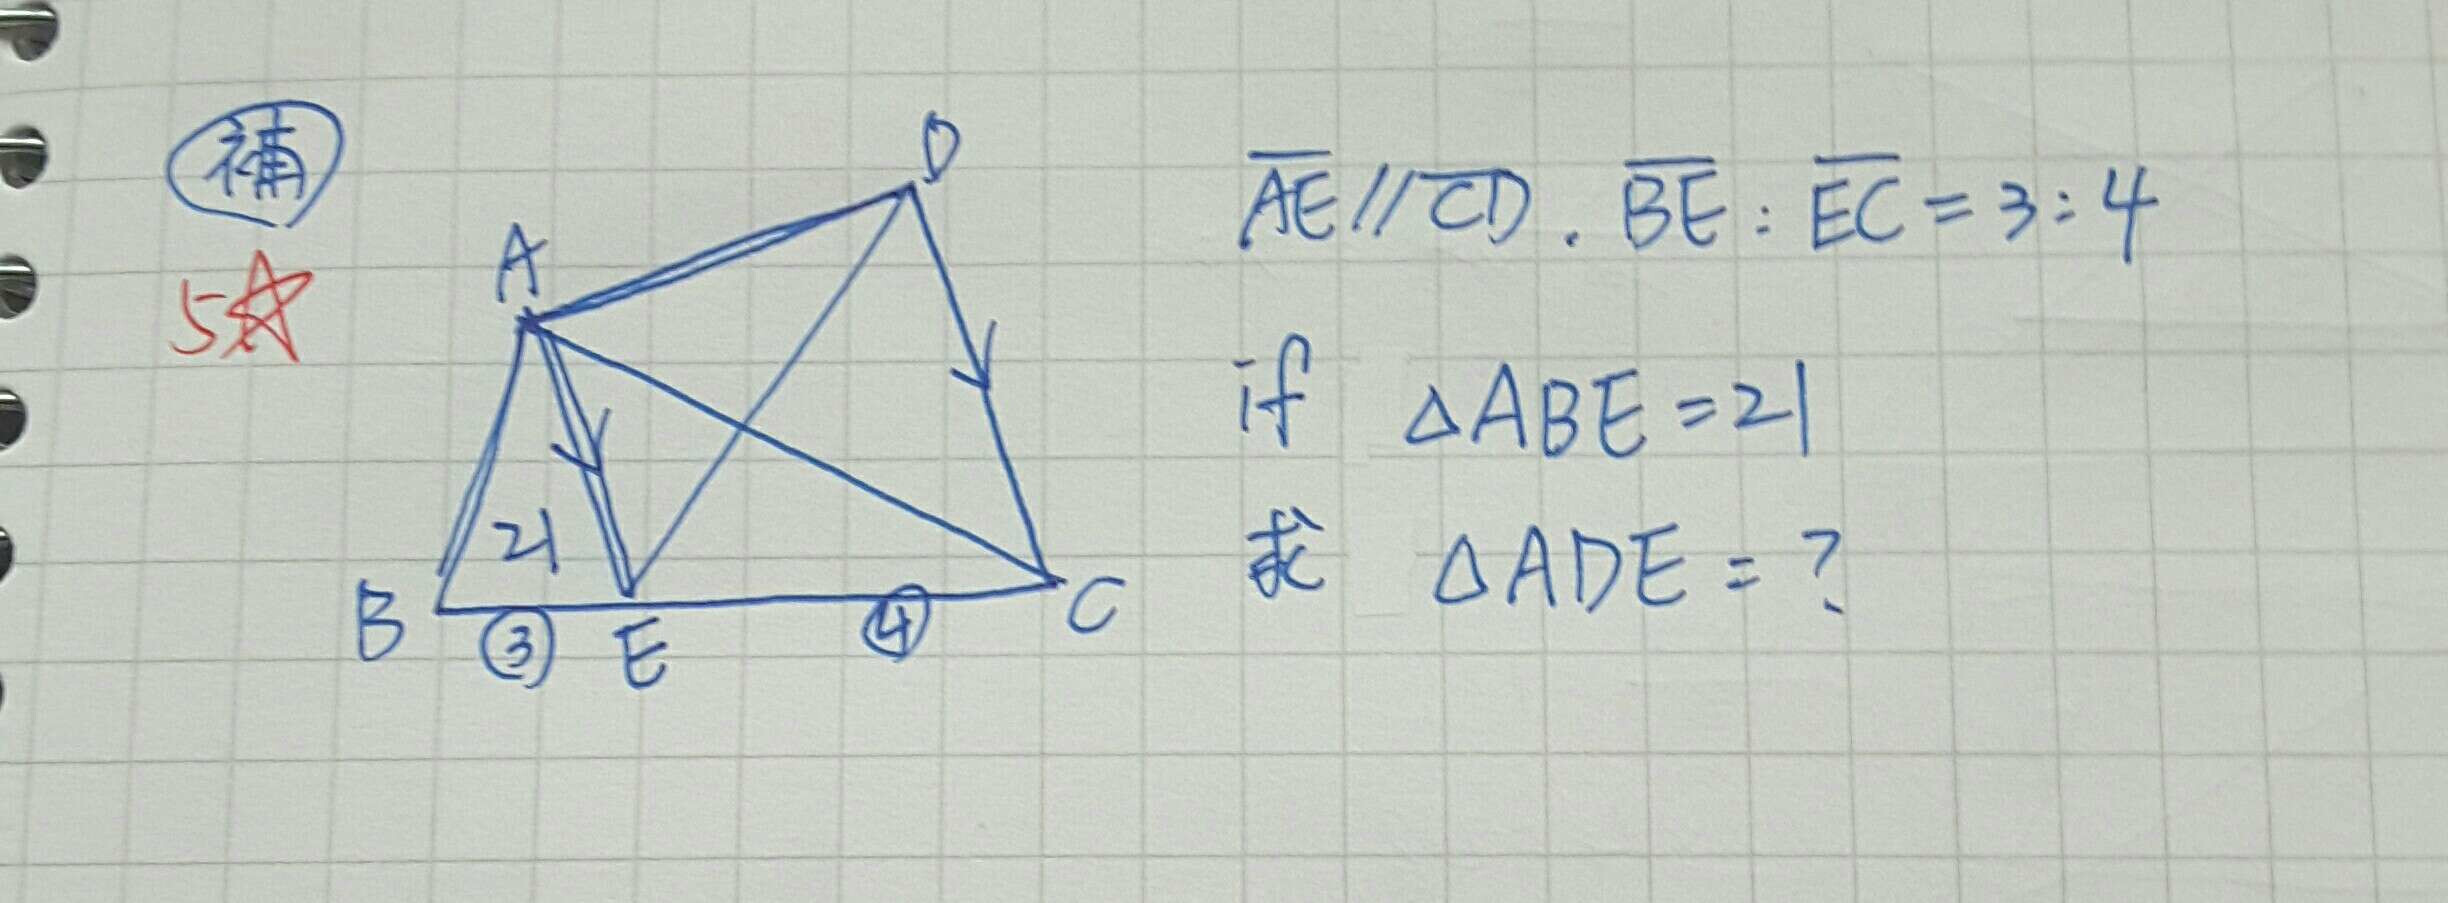 補
5☆
D
A
21
B
③
E
④
C
AE // CD . BE : EC = 3 : 4
if △ABE = 21
求 △ADE = ?